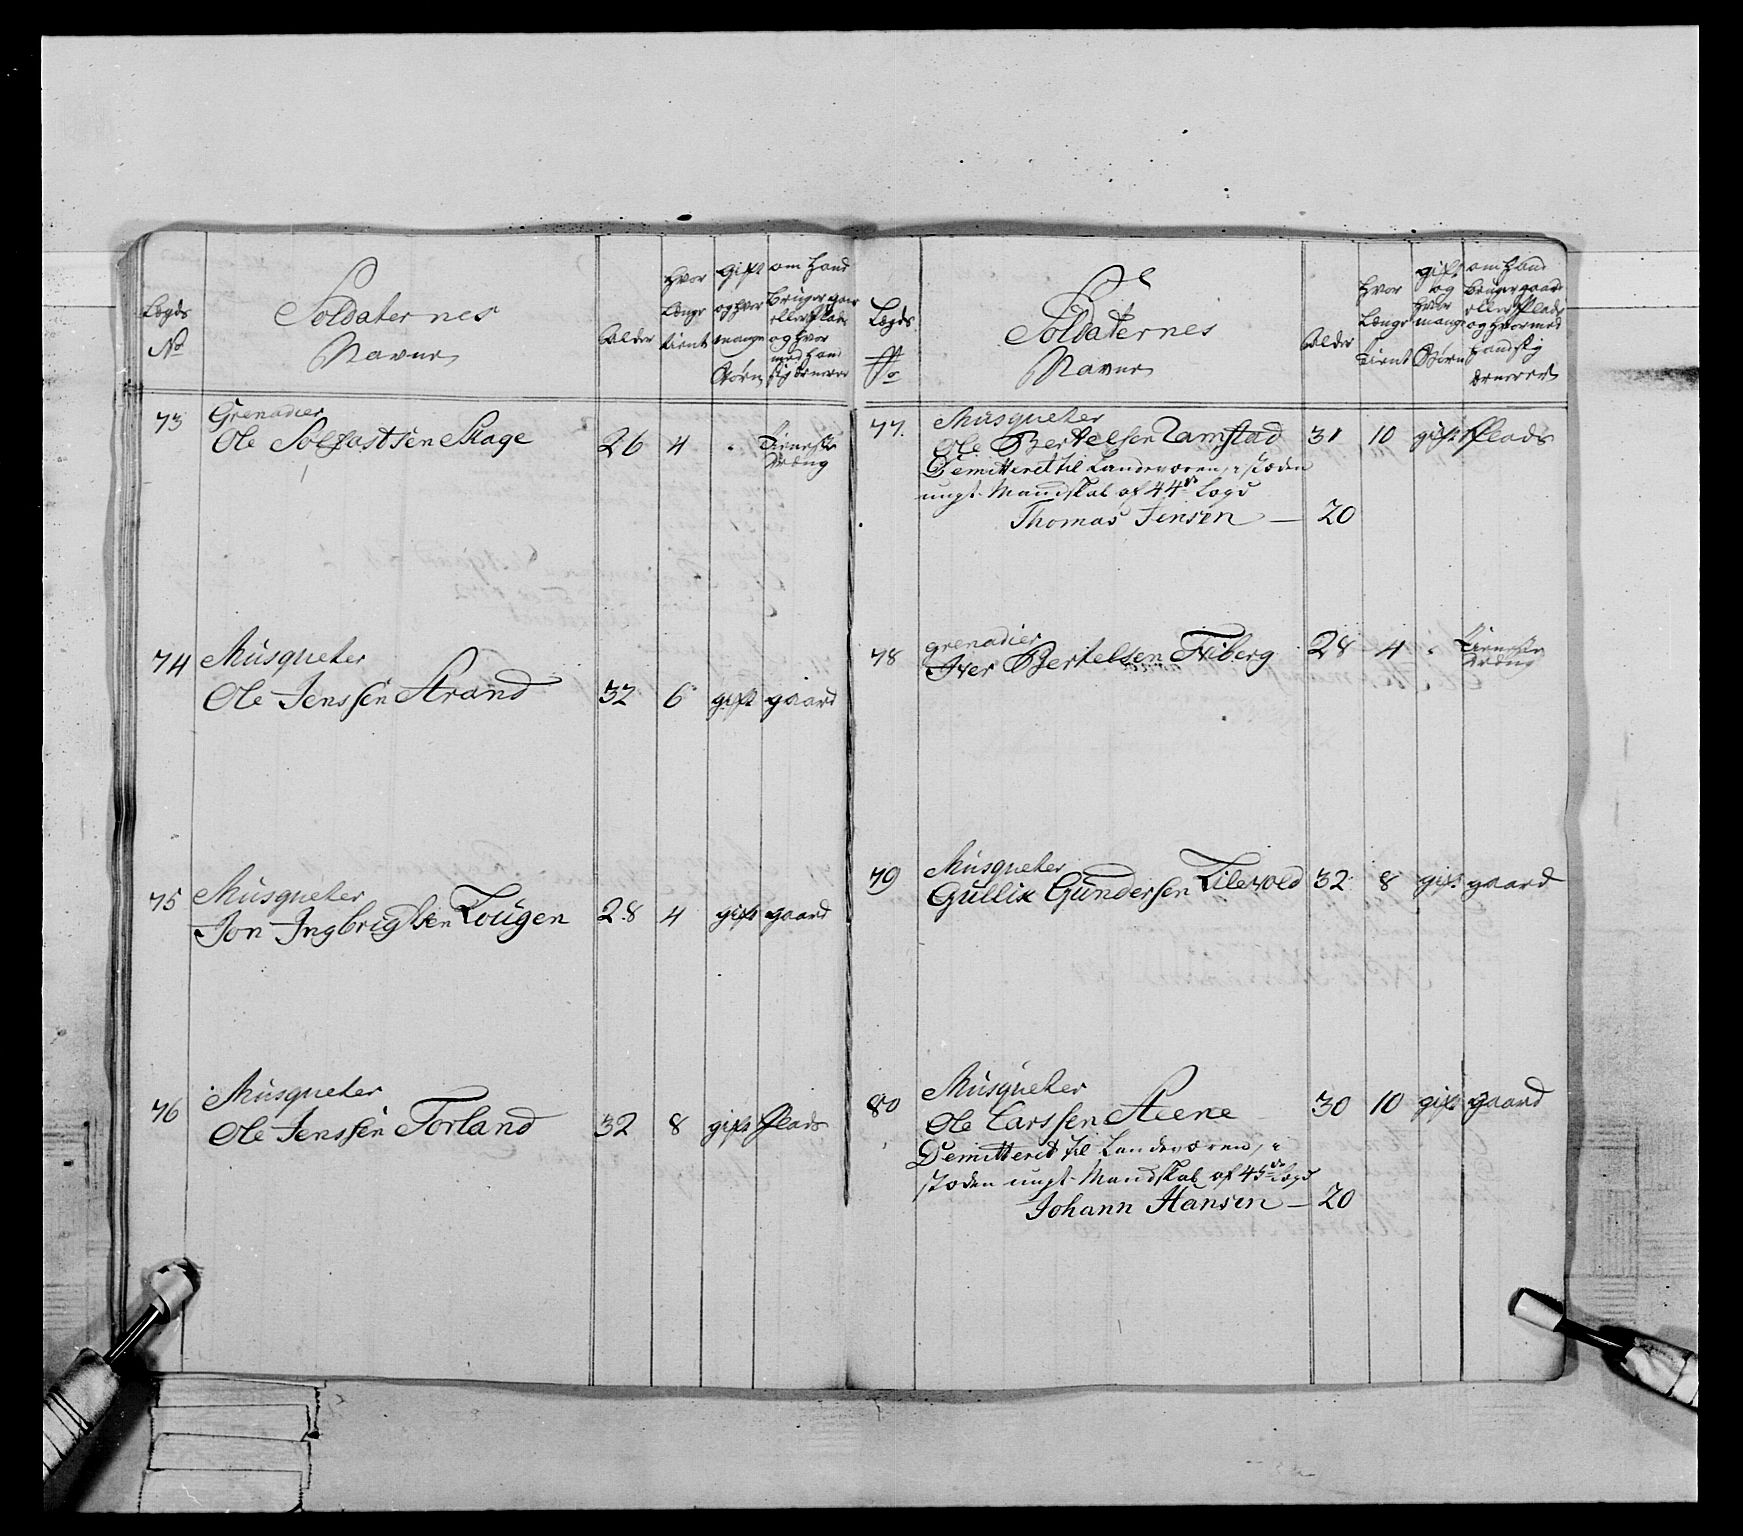 Lægds
No
Soldaternes
Navne
Alder
Hvor
Længe
tient
gift
og hvor
mange
Børn
om hand
bruger gaar
eller Plads
og hvor
med hand
sig ernerer
73
Grenadier
Ole Solfastsen Skage
26
4
"
Tieneste
Dræng
74
Musqueter
Ole Jenssen Strand
32
6
gift
gaard
75
Musqueter
Jon Ingbrigtsen Lougen
28
4
gift
gaard
76
Musqueter
Ole Jenssen Forland
32
8
gift
Plads
Lægds
No
Soldaternes
Navne
Alder
Hvor
Længe
tient
gift
og
hvor
mange
Børn
om hand
bruger gaard
eller Plads
og hvor med
hand sig
ernerer
77.
Musqueter
Ole Bertelsen Tamstad
31
10
gift
Plads
Demitteret til Landeværen, i stæden
ungt Mandskab af 44de Lægd
Thomas Jensen —
20
78
Grenadier
Iver Bertelsen Fiberg
28
4
"
Tieneste
Dræng
79
Musqueter
Gullik Gundersen Lilevold
32
8
gift
gaard
80
Musqueter
Ole Larssen Steene
30
10
gift
gaard
Demitteret til Landeværen, i
stæden ungt Mandskab af 45de Lægd
Johann Hansen —
20